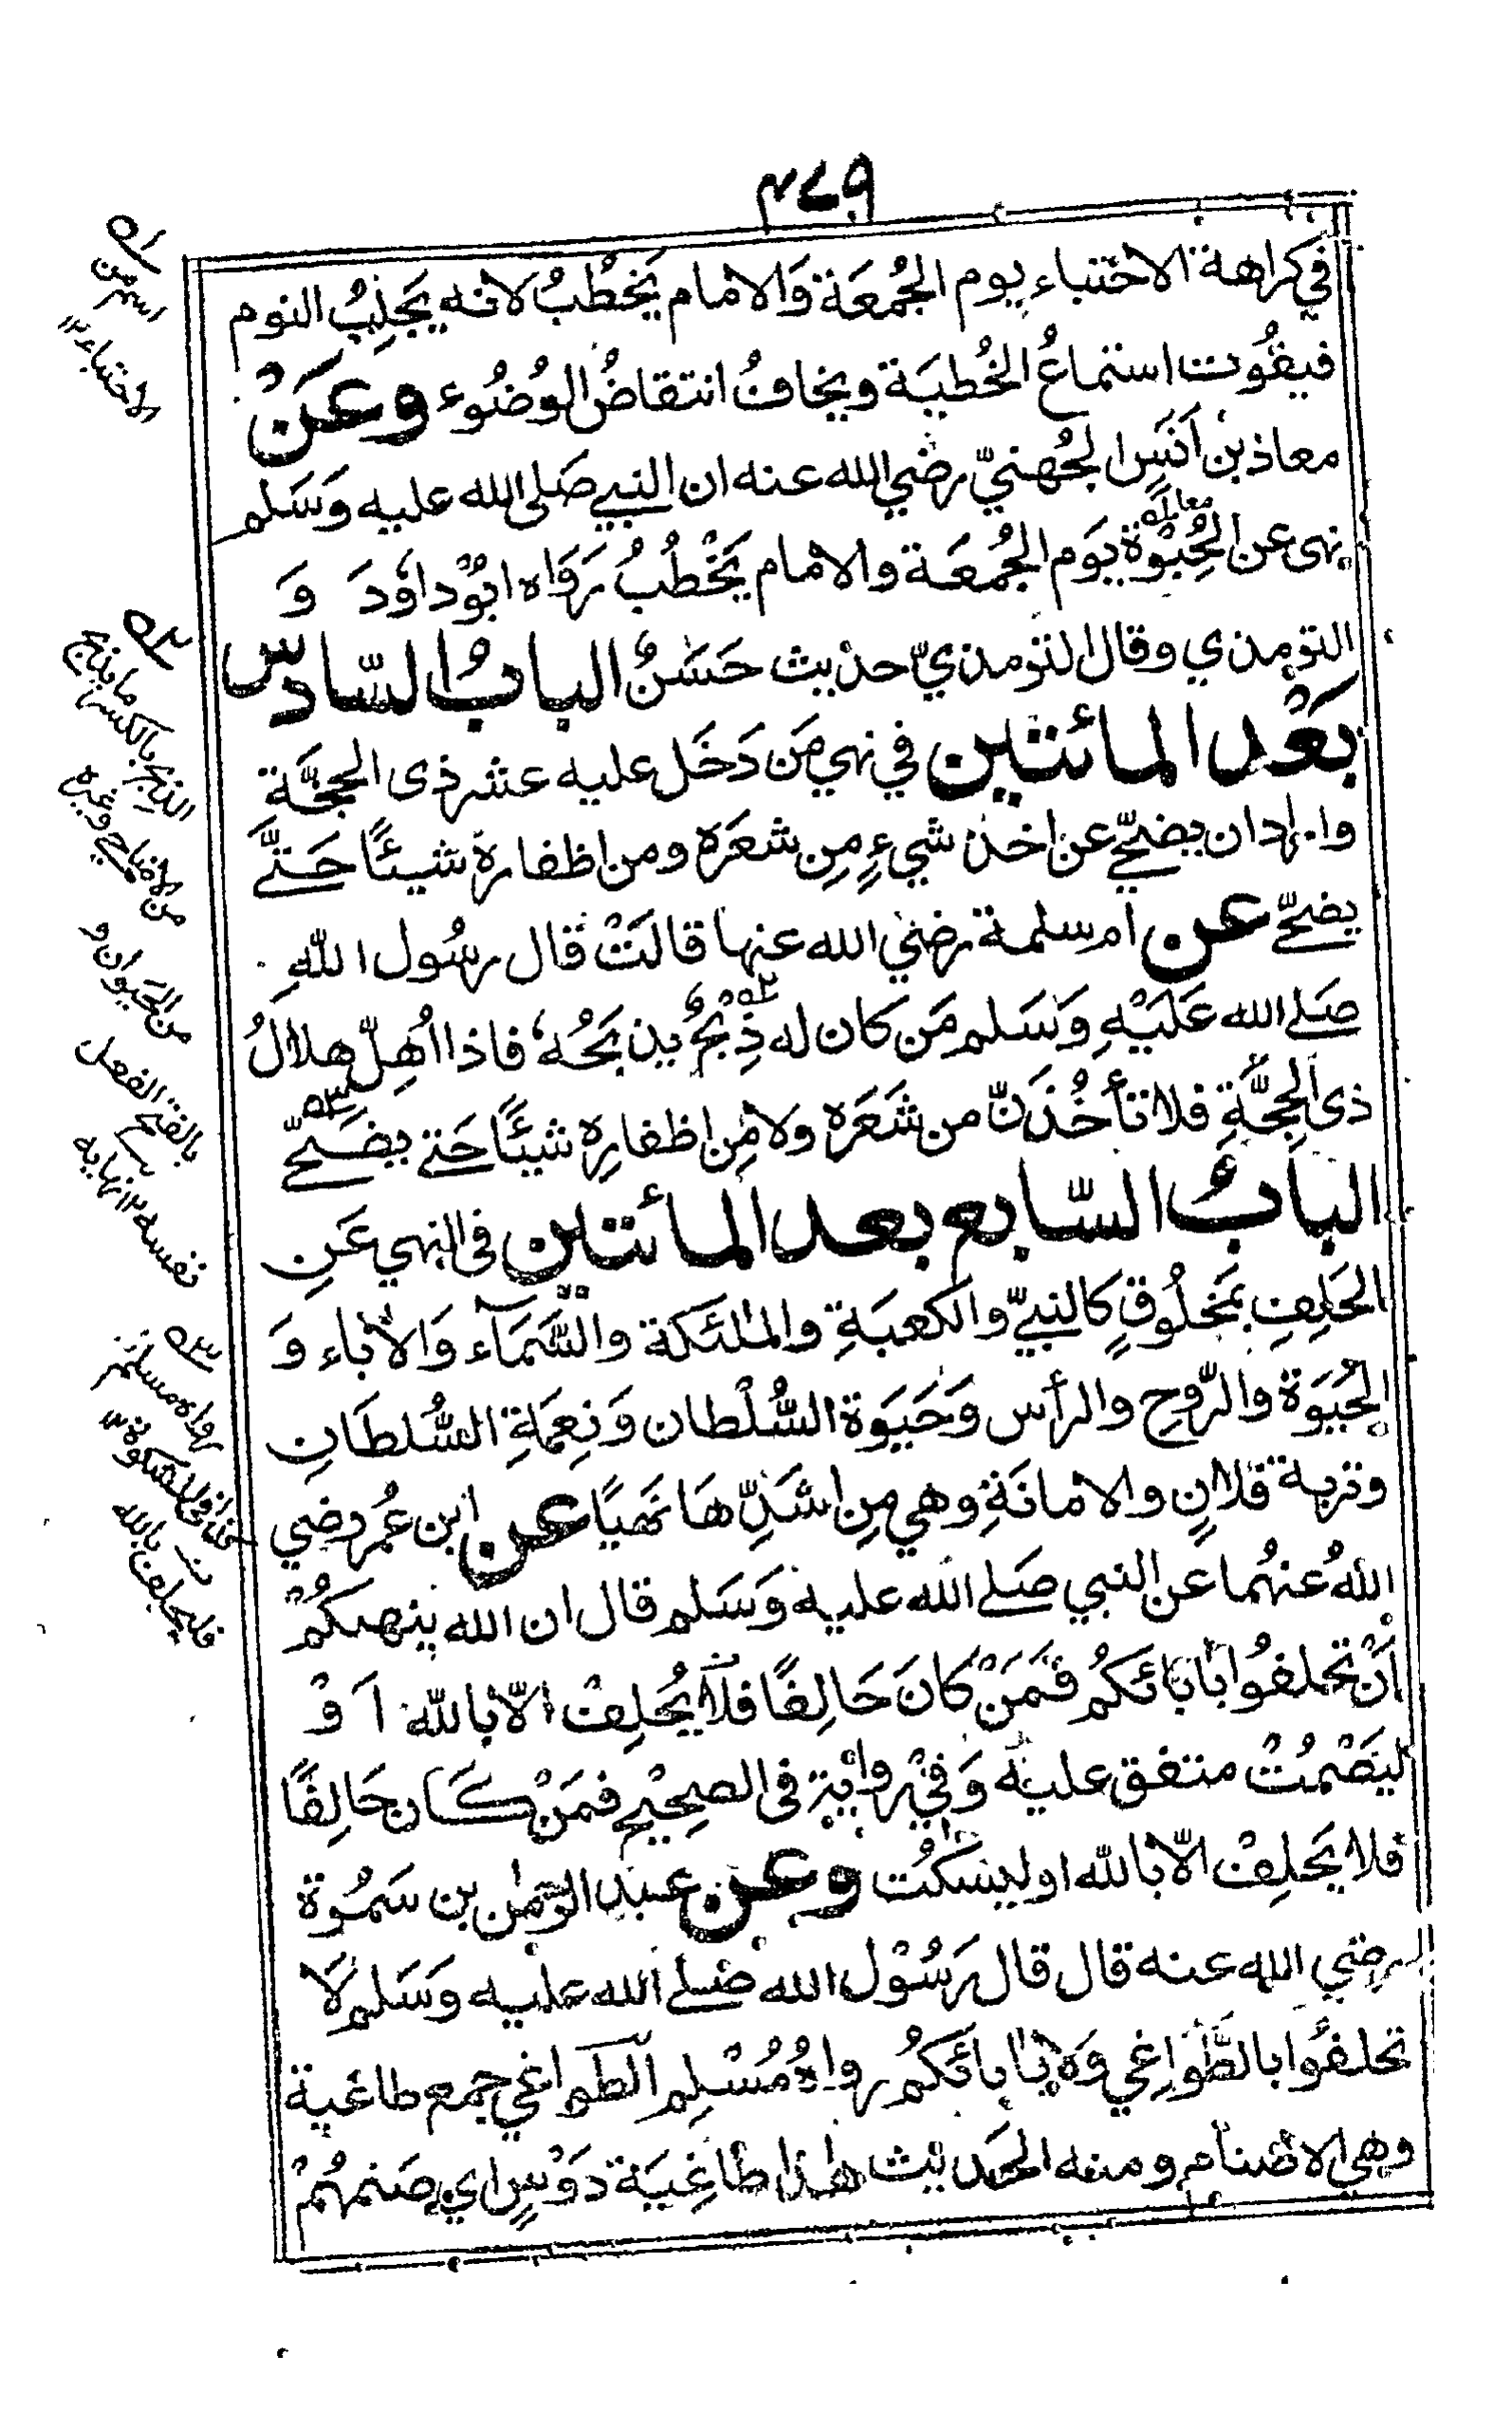 ٤٧٩
في كراهة الاحتباء يوم الجُمعَة وَالامام يَخطُبُ لانه يَجلِبُ النوم
فيفُوت استماعُ الخُطبَة ويخافُ انتقاضُ الوُضُوء وعَنْ
معاذ بن اَنَسٍ الجُهنيّ رضي الله عنه ان النبي صَلى الله عليه وَسَلم
نهى عن الحُِبْوَة يَوم الجُمعَة والامام يَخْطُبُ رَوَاه ابُوْداوٗدَ وَ
الترمذي وقال الترمذيّ حديث حَسَنٌ البابُ السّادس
بَعْد المائتين في نهي مَن دَخَل عليه عشر ذى الحِجَّة
وارادان يضحّي عن اخذ شيءٍ مِن شعَره ومن اظفاره شيئًا حَتَّى
يضحّي عن ام سلمة رضي الله عنها قالَتْ قال رسُول اللهِ
صَلى الله عَلَيْهِ وَسَلم مَن كان له ذِبْحٌ يذبَحُهٗ فاذا اُهِلّ هلالُ
ذى الحِجَّةِ فلا تأخُذَنّ من شَعَره ولا مِن اظفارِه شيئًا حَتى يضَحّي
البابُ السّابع بعد المأئتين فى النهي عَنِ
الحَلِفِ بمَخلُوقٍ كالنبيّ والكعبَةِ والملئكة والسَّمَآء وَالاٰباء وَ
الحَيٰوَة والرّوح والرأس وَحَيٰوَة السُّلْطان وَنِعمَةِ السُّلطَانِ
وتربة فلانٍ والامانَةِ وهي مِن اشَدِّها نَهيًا عن ابن عُمر رضي
اللهُ عنهُما عن النبي صَلى الله عليه وَسَلم قال ان الله ينهٰىكُمْ
اَنْ تحلفُوا بٰابٰائكُم فمَنْ كانَ حَالِفًا فلَا يَحْلِفْ الّا باللّه اَوْ
لِيَصْمُتْ متفق عليه وَفيْ روايةٍ فى الصحيْحِ فمَنْ كَان حَالِفًا
فلا يَحلِفْ الّا بالله او ليسْكُت وعن عبد الرّحمٰن بن سَمُرة
رضي الله عنه قال قال رَسُوْل الله صَلى الله عليه وَسَلم لَا
تحلفُوا بالطَّوَاغِي وَلا بٰابائكُم رواهُ مُسْلِم الطواغي جمع طاغية
وهي الاصنام ومنه الحَديث هٰذا طاغِيَة دَوْسٍ اي صَنمهُمْ
معاملَه
٥٢
٥٣
٥١
اسم من
الاحتباء ١٢
٥٢
ما يذبح
الذِبح بالكسر
من الاضاحي وغيره
من الحَيوان و
بالفتح الفعل
نفسه ١٢ نهايه
٥٣
رواه مسلم
كذا فى المشكوة ١٢
فليحلف بالله